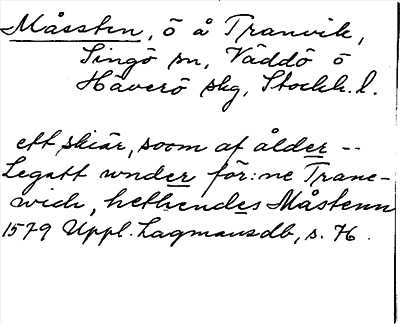 Måssten, ö å Tranvik,
Singö sn, Väddö o
Häverö skg, Stockh. l.
ett skiär, soom af ålder --
Legatt wnder för:ne Trane-
wich, hethendes Måstenn
1579 Uppl. Lagmansdb, s. 76.